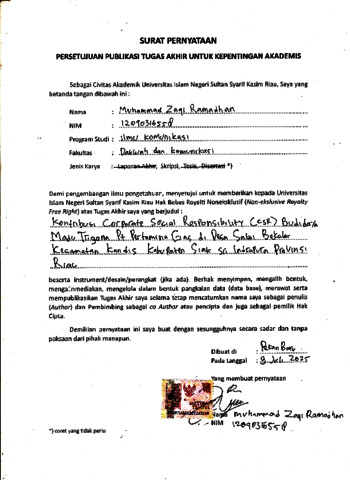 SURAT PERNYATAAN
PERSETUJUAN PUBLIKASI TUGAS AKHIR UNTUK KEPENTINGAN AKADEMIS
Sebagai Civitas Akademik Universitas Islam Negeri Sultan Syarif Kasim Riau, Saya yang
betanda tangan dibawah ini :
Nama : Muhammad Zaqi Ramadhan
NIM : 12090316558
Program Studi : ilmu komunikasi
Fakultas : Dakwah dan komunikasi
Jenis Karya : Laporan Akhir, Skripsi, Tesis, Disertasi *)
Demi pengembangan ilmu pengetahuan, menyetujui untuk memberikan kepada Universitas
Islam Negeri Sultan Syarif Kasim Riau Hak Bebas Royalti Noneksklusif (Non-eksclusive Royalty
Free Right) atas Tugas Akhir saya yang berjudul :
Kontribusi Corporate Social Responsibility (CSR) Budidaya
Madu Trigona Pt Pertamina Gas di Desa Sialai
Kecamatan Kandis Kabupaten Siak sri Indrapura Provinsi
Riau
beserta instrument/desain/perangkat (jika ada). Berhak menyimpan, mengalih bentuk,
mengelola dalam bentuk pangkalan data (data base), merawat serta
mempublikasikan Tugas Akhir saya selama tetap mencantumkan nama saya sebagai penulis
(Author) dan Pembimbing sebagai co Author atau pencipta dan juga sebagai pemilik Hak
Cipta.
Demikian pernyataan ini saya buat dengan sesungguhnya secara sadar dan tanpa
paksaan dari pihak manapun.
Dibuat di : Pekan Baru
Pada tanggal : 9 Juli 2025
Yang membuat pernyataan
Nama Muhammad Zaqi Ramadhan
NIM 12090316558
*) coret yang tidak perlu